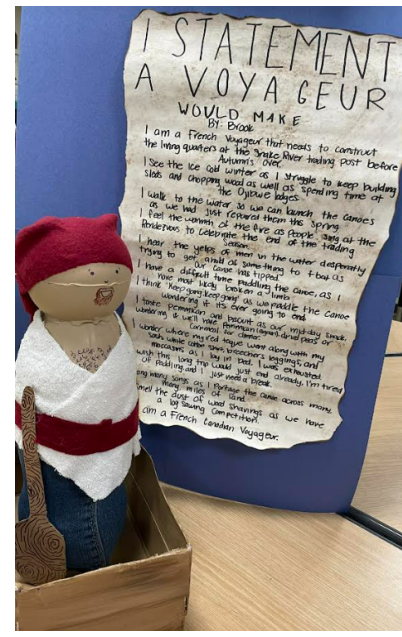 I STATEMENT
A VOYAGEUR
WOULD MAKE
BY: Brook
I am a French Voyageur that needs to construct
the living quarters at the Snake River trading post before
Autumn's over.
I see the ice cold winter as I struggle to keep building
sleds and chopping wood as well as spending time at
the Ojibwe lodges
I walk to the water so we can launch the canoes
as we had just repaired them this spring
I feel the warmth of the fire as people sing at the
Rendezvous to celebrate the end of the trading
season.
I hear the yelps of men in the water desperatly
trying to get ahold of something to float as
our canoe has tipped.
I have a difficult time paddling the canoe, as I
have most likely broken a limb
I think "keep going keep going" as we paddle the canoe
wondering if its ever going to end
I taste pemmican and biscuit as our mid-day snack.
wondering if we'll have Pemmican legan, dried peas or
Cornmeal for dinner.
I wonder where my red toque went along with my
sash white cotton shirt, breechers leggings, and
moccasins as I lay in bed. I was exhausted
wish this long trip would just end already. I'm tired
of Paddling and I just need a break.
many miles of land.
smell the dust of wood shavings as we have
a log sawing competition.
am a French Canadian Voyageur.